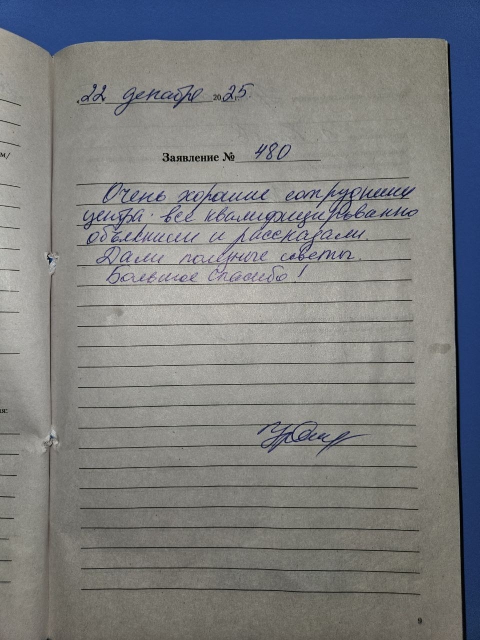 22 декабря 2025 г.
Заявление № 480
Очень хорошие сотрудники
центра. все квалифицированно
объяснили и рассказали.
Дали полезные советы.
Большое спасибо!
м/
ия:
9